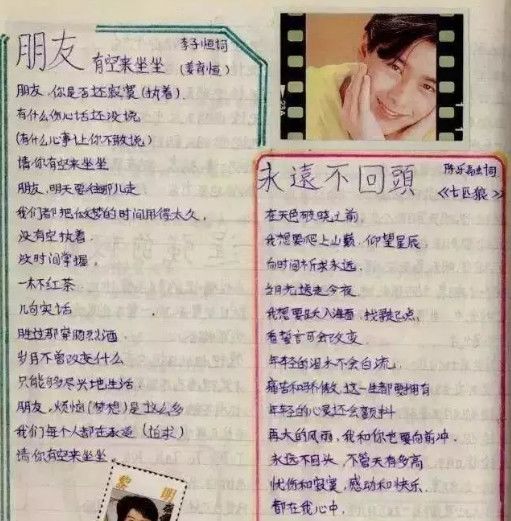 朋友
李子恒词
有空来坐坐
(姜育恒)
朋友，你是否还寂寞(执着)
有什么伤心话还没说
(有什么心事让你不敢说)
请你有空来坐坐
朋友，明天要往哪儿走
我们都把做梦的时间用得太久，
没有空执着，
没时间掌握，
一杯红茶
几句实话
胜过那穿肠烈酒，
岁月不曾改变什么
只能够尽兴地生活
朋友，烦恼(梦想)是这么多
我们每个人都在承受(追求)
请你有空来坐坐，
黎明
永遠不回頭
陈乐融词
《七匹狼》
在天色破晓之前，
我想要爬上山巅，仰望星辰
向时间祈求永远，
当月光送走今夜，
我想要跃入海面，找寻起点，
看誓言可会改变，
年轻的泪水不会白流，
痛苦和骄傲，这一生都要拥有
年轻的心灵还会颤抖
再大的风雨，我和你也要向前冲，
永远不回头，不管天有多高
忧伤和寂寞，感动和快乐，
都在我心中，